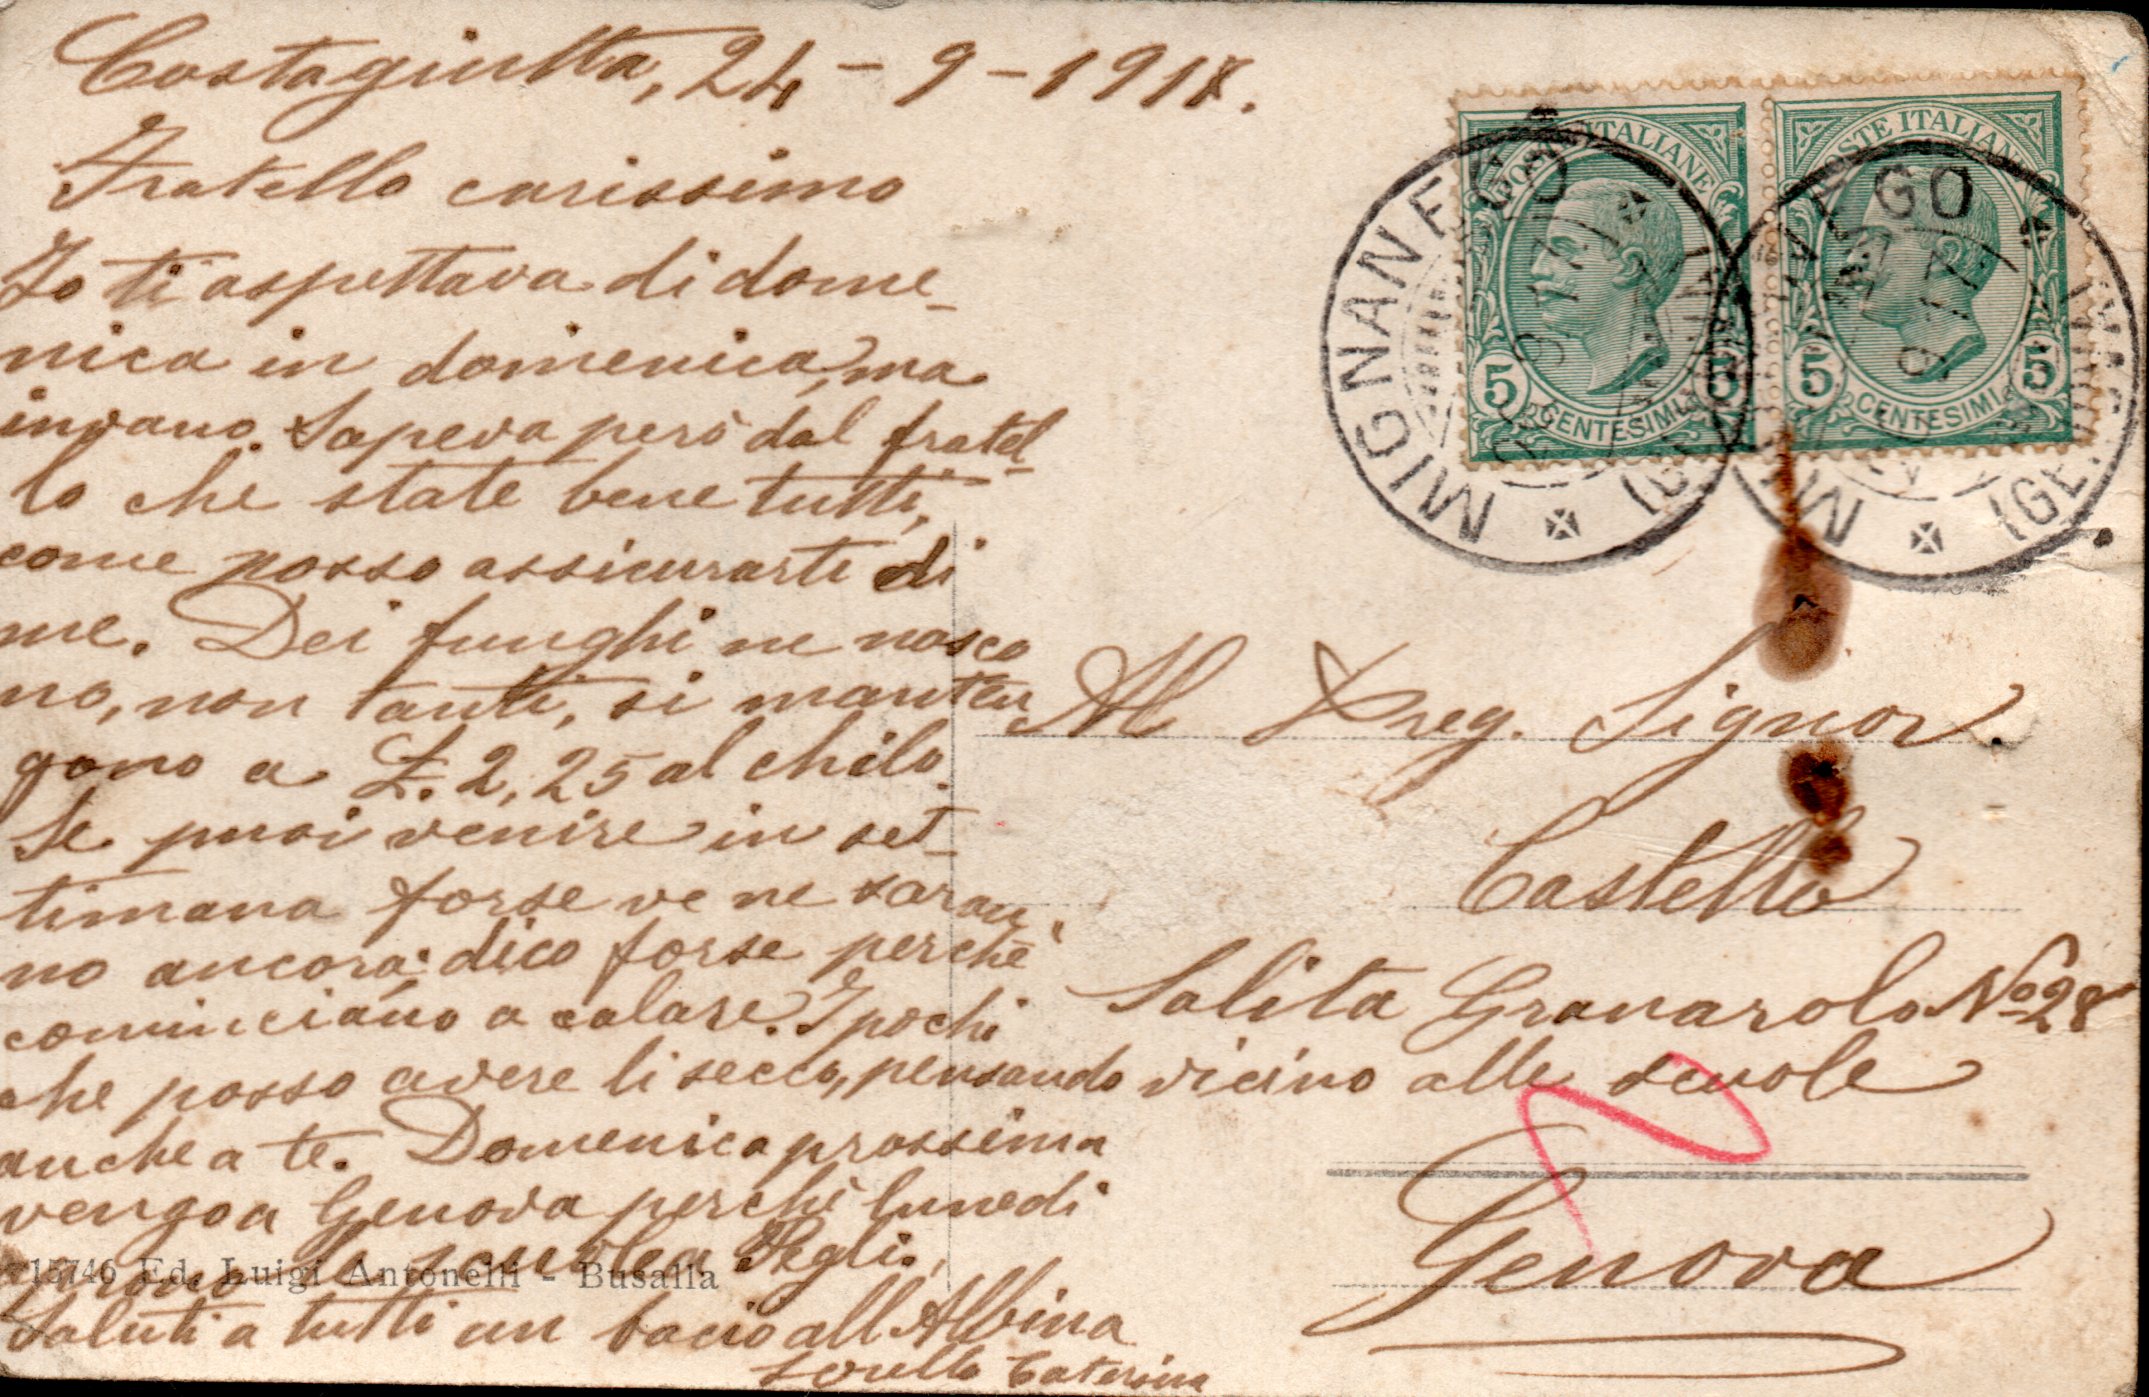 Costagiutta, 24-9-1917.
Fratello carissimo
Io ti aspettava di dome-
nica in domenica, ma
invano. Sapeva però dal fratel-
lo che state bene tutti,
come posso assicurarti di
me. Dei funghi ne nasco
no, non tanti, si manten
gono a £. 2,25 al chilo.
Se puoi venire in set-
timana forse ve ne saran
no ancora; dico forse perchè
cominciano a calare. I pochi
che posso avere li secco, pensando
anche a te. Domenica prossima
vengo a Genova perchè lunedi
scuola Pegli.
Saluti a tutti un bacio all'Albina
sorella Caterina
15746 Ed. Luigi Antonelli - Busalla
POSTE ITALIANE
5 CENTESIMI 5
POSTE ITALIANE
5 CENTESIMI 5
MIGNANEGO
(GE
MIGNANEGO
(GE
Al Preg. Signor
Castello
Salita Granarolo No 28
vicino alle scuole
Genova